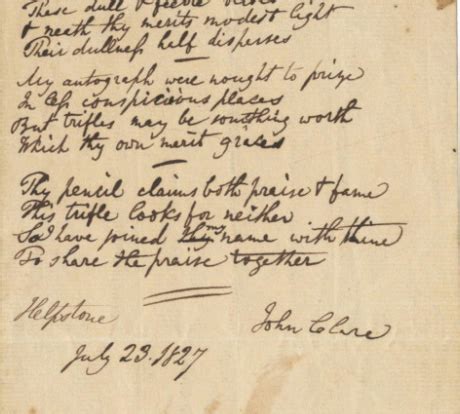 These dull & feeble
& neath thy merits modest light
Their dullness half disperses
My autograph were nought to prize
In less conspicious places
But trifles may be something worth
Which thy own merit graces
Thy pencil claims both praise & fame
This trifle looks for neither
So I have joined name with thine
To share the praise together
Helpstone
John Clare
July 23. 1827